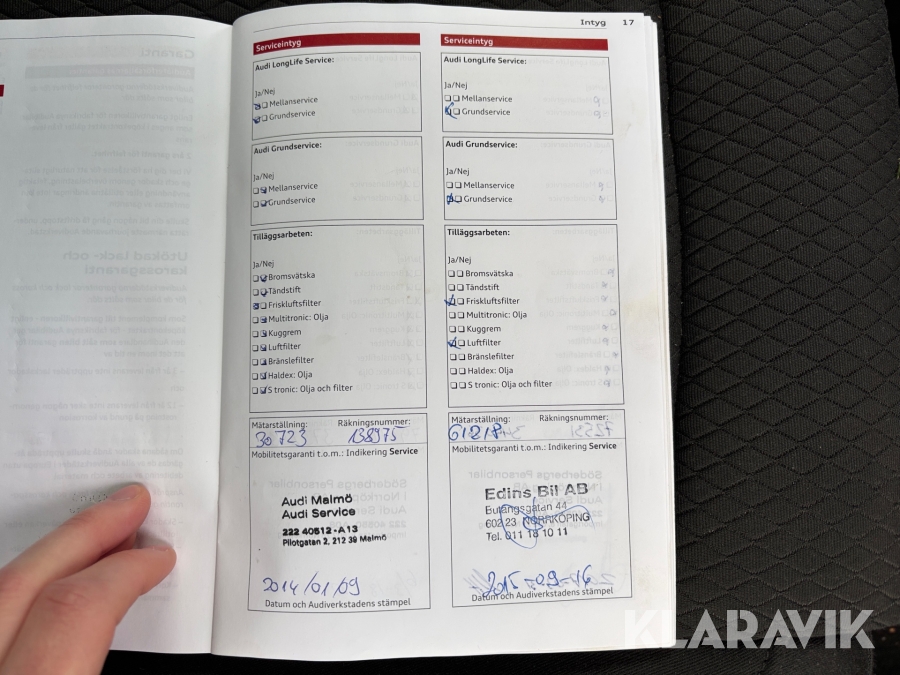 Intyg 17
Serviceintyg
Audi LongLife Service:
Ja/Nej
Mellanservice
Grundservice
Audi Grundservice:
Ja/Nej
Mellanservice
Grundservice
Tilläggsarbeten:
Ja/Nej
Bromsvätska
Tändstift
Friskluftsfilter
Multitronic: Olja
Kuggrem
Luftfilter
Bränslefilter
Haldex: Olja
S tronic: Olja och filter
Mätarställning: Räkningsnummer:
30723 138975
Mobilitetsgaranti t.o.m.: Indikering Service
Audi Malmö
Audi Service
222 40512-A13
Pilotgatan 2, 212 39 Malmö
2014/01/09
Datum och Audiverkstadens stämpel
Serviceintyg
Audi LongLife Service:
Ja/Nej
Mellanservice
Grundservice
Audi Grundservice:
Ja/Nej
Mellanservice
Grundservice
Tilläggsarbeten:
Ja/Nej
Bromsvätska
Tändstift
Friskluftsfilter
Multitronic: Olja
Kuggrem
Luftfilter
Bränslefilter
Haldex: Olja
S tronic: Olja och filter
Mätarställning: Räkningsnummer:
61218
Mobilitetsgaranti t.o.m.: Indikering Service
Edins Bil AB
44
602 23 NORRKÖPING
Tel. 011 18 10 11
2015-09-16
Datum och Audiverkstadens stämpel
KLARAVIK